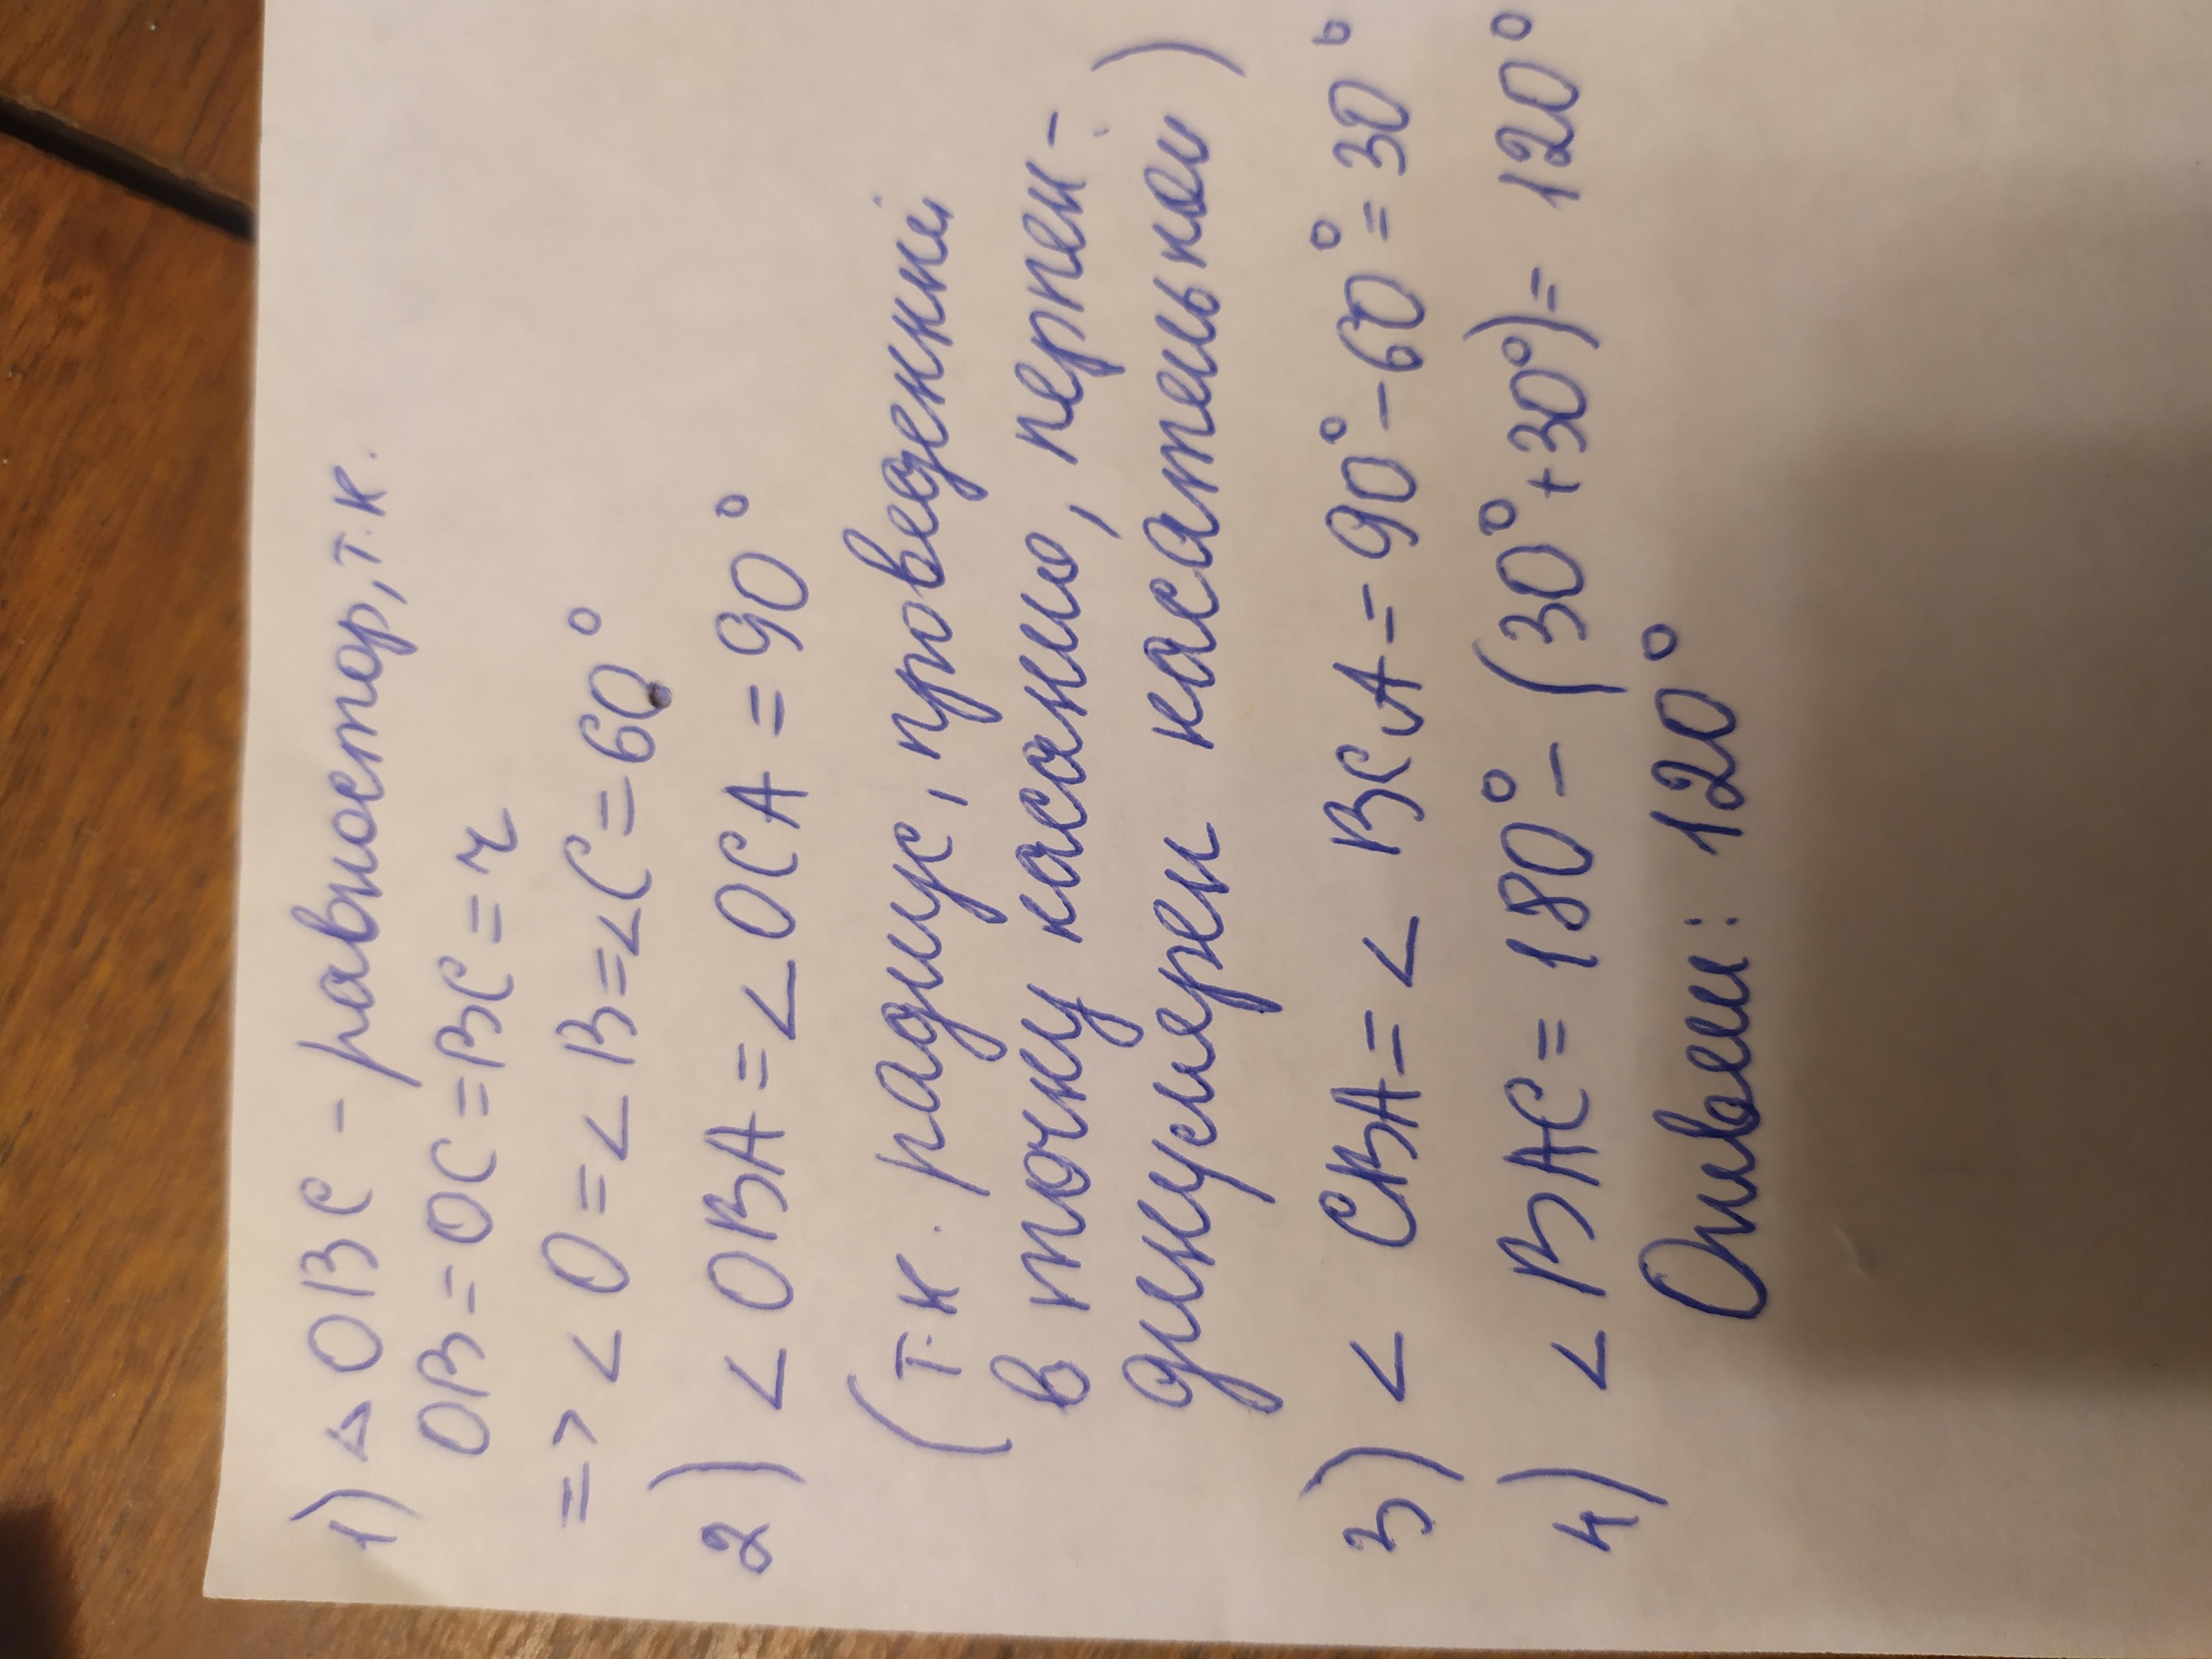 1) △ OBC - равностор, т.к.
OB = OC = BC = r
=> ∠O = ∠B = ∠C = 60°
2) ∠OBA = ∠OCA = 90°
(т.к. радиус, проведенный
в точку касанию, перпен-
дикулярен касательной)
3) ∠ CBA = ∠ BCA = 90° - 60° = 30°
4) ∠ BAC = 180° - (30° + 30°) = 120°
Ответ: 120°